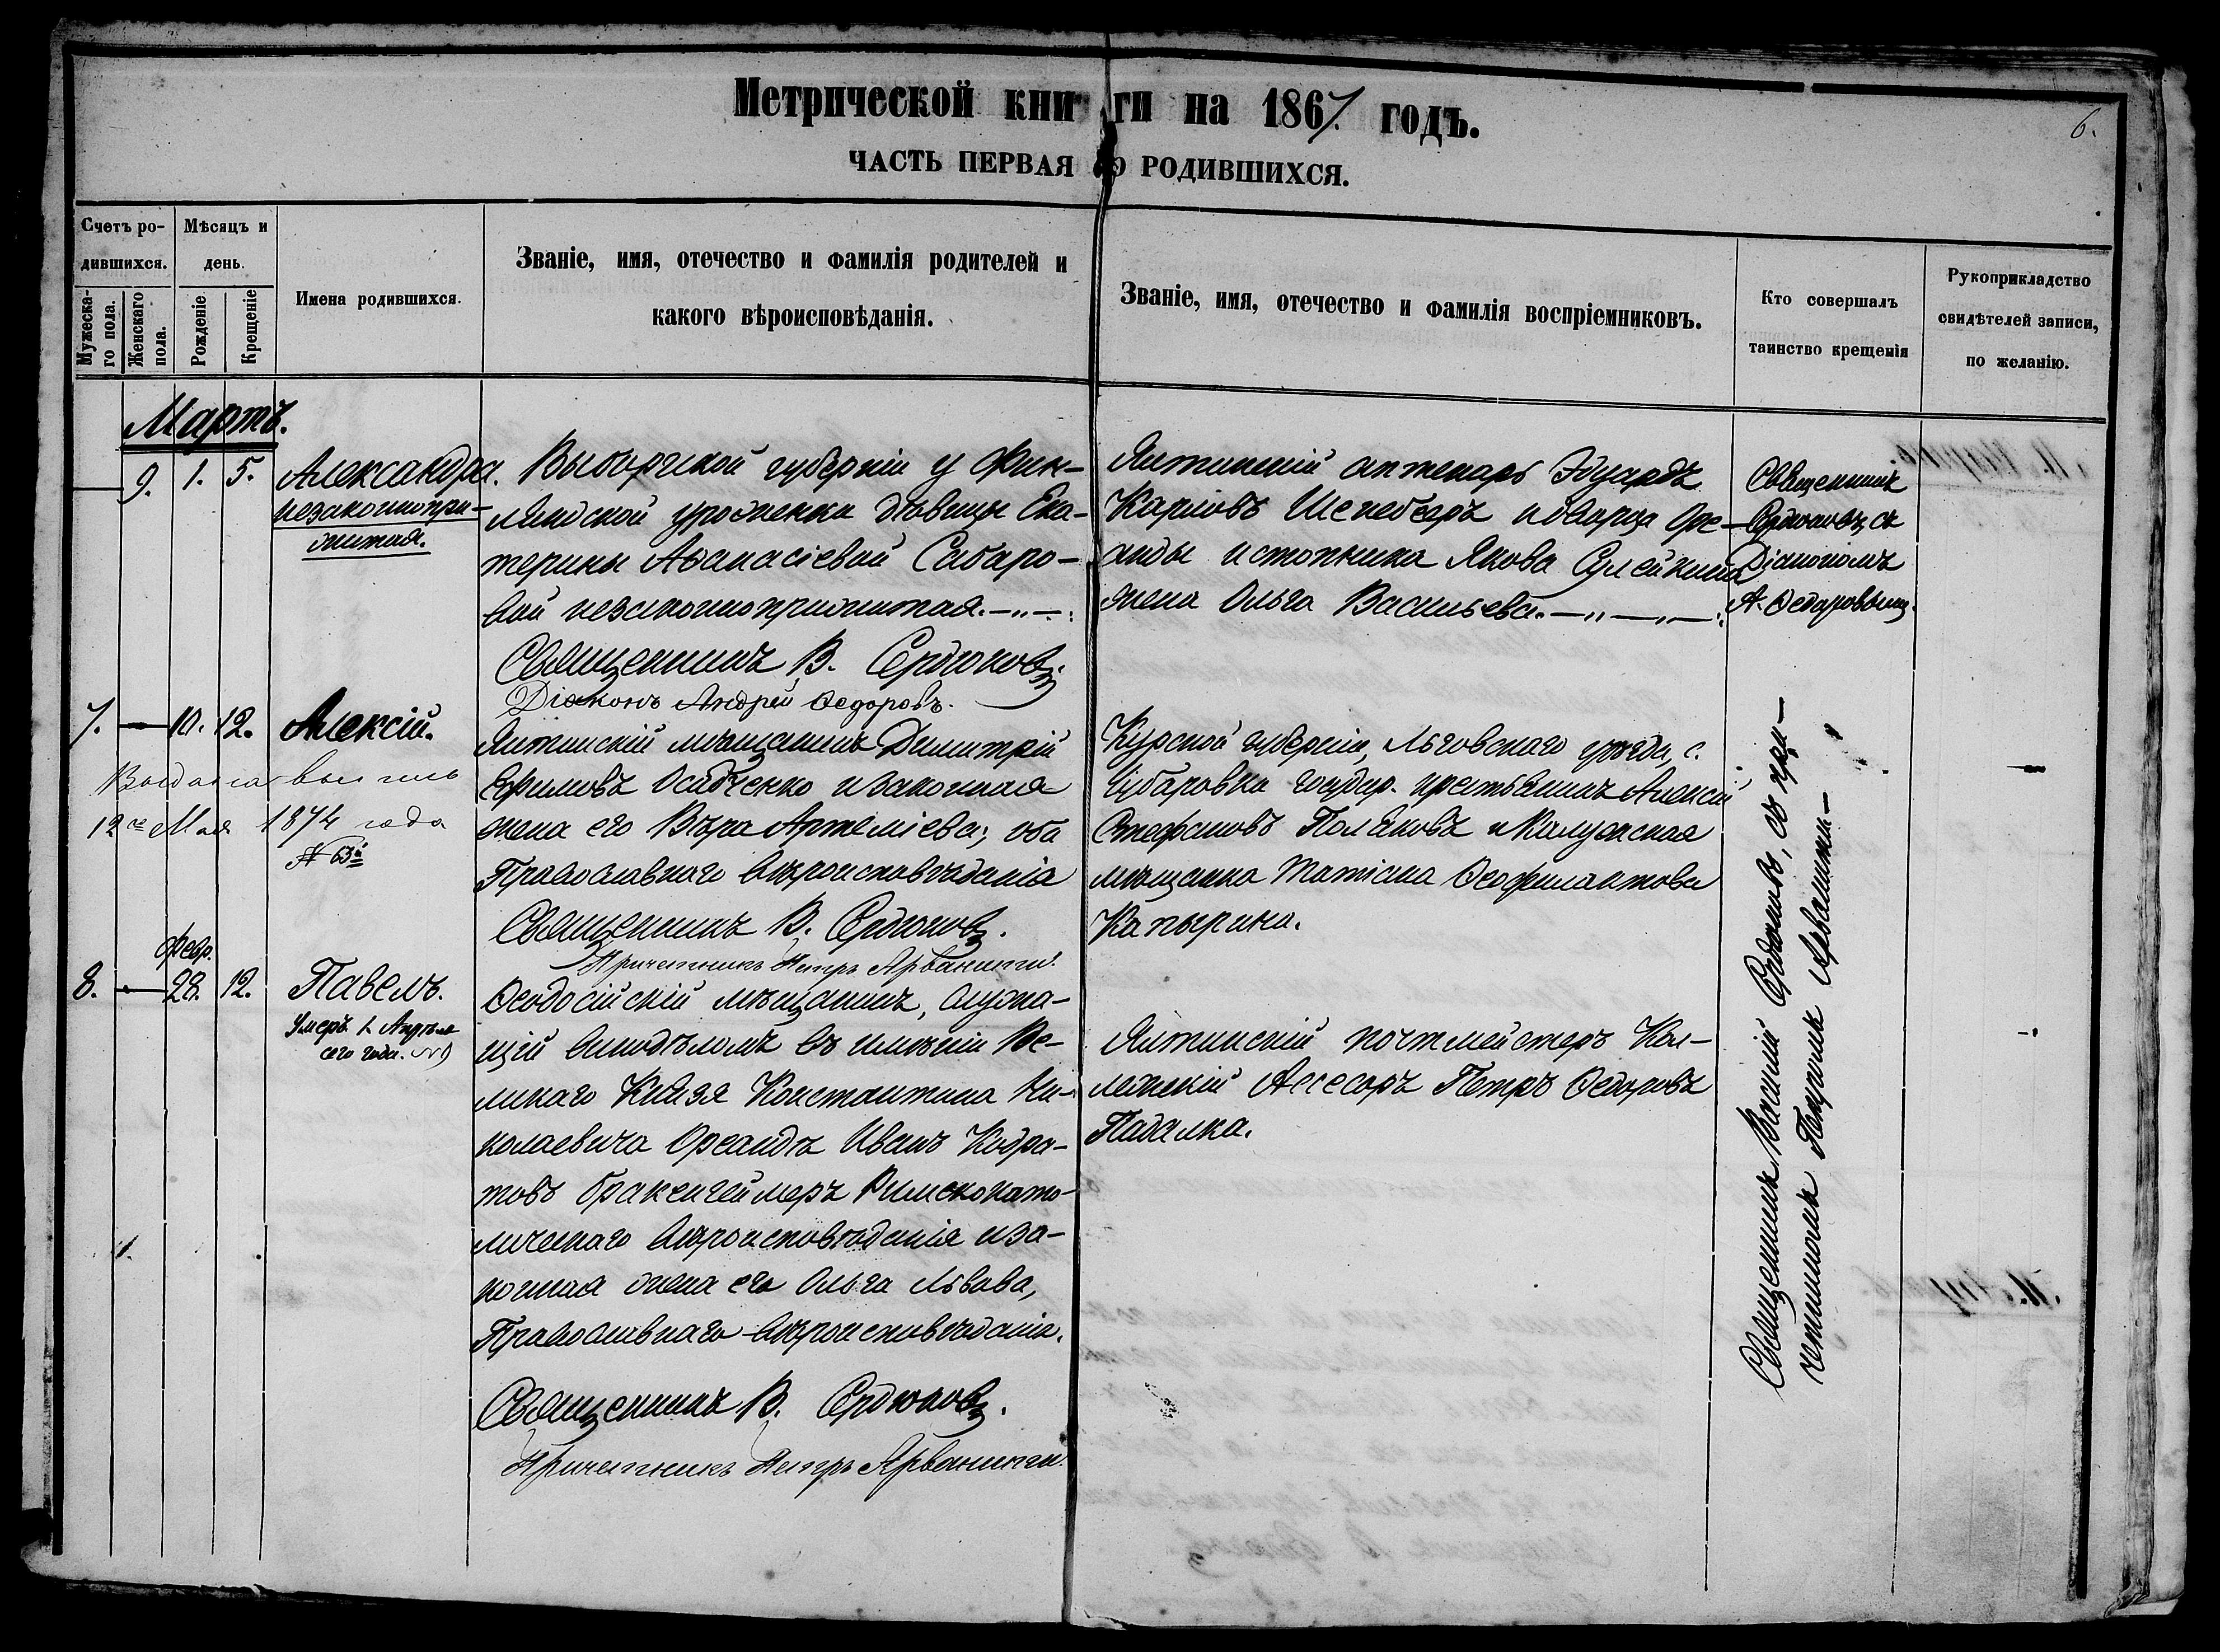 Метрической книги на 1867 годъ.
6.
ЧАСТЬ ПЕРВАЯ О РОДИВШИХСЯ.
Счетъ родившихся.
Мужескаго пола.
Женскаго пола.
Мѣсяцъ и день.
Рожденіе
Крещеніе
Имена родившихся.
Званіе, имя, отечество и фамилія родителей и
какого вѣроисповѣданія.
Званіе, имя, отечество и фамилія воспріемниковъ.
Кто совершалъ
таинство крещенія
Рукоприкладство
свидѣтелей записи,
по желанію.
Мартъ.
9. 1. 5.
Александра.
незаконнопри-
житая.
Выборгской губерніи у Фин-
ляндской уроженки дѣвицы Ека-
терины Аѳанасіевой Сабаро-
вой незаконноприжитая.—„—.
Священникъ В. Сердюковъ.
Діаконъ Андрей Ѳедоровъ.
Ялтинскій аптекарь Эдуардъ
Карловъ и дворца Оре-
анды истопника Якова
жена Ольга Васильева.—„—„—.
Священникъ
Сердюковъ съ
Діакономъ
А. Ѳедоровымъ.
7. — 10. 12.
Алексій.
Выдана выпись
12го Мая 1874 года
№ 63й
Ялтинскій мѣщанинъ Димитрій
Ефимовъ Осадченко и законная
жена его Вѣра Артеміева; оба
Православнаго вѣроисповѣданія
Священникъ В. Сердюковъ.
Причетникъ Петръ Арванити.
Курской губерніи, Льговскаго уѣзда, с.
государ. крестьянинъ Алексій
Стефановъ Поляковъ и Калужская
мѣщанка Татіана Ѳеофилактова
Капырина.
Священникъ Василій Сердюковъ, съ при-
четникомъ Петромъ Арванити—
Февр.
8. — 28. 12.
Павелъ.
Умеръ 1 Апрѣля
сего года.
Ѳеодосійскій мѣщанинъ, служа-
щій винодѣломъ въ имѣніи Ве-
ликаго Князя Константина Ни-
колаевича Ореандѣ Иванъ Кодра-
товъ Браксигеймеръ Римскокато-
лическаго вѣроисповѣданія и за-
конная жена его Ольга Львова,
Православнаго вѣроисповѣданія.
Священникъ В. Сердюковъ.
Причетникъ Петръ Арванити.
Ялтинскій почтмейстеръ Кол-
лежскій Ассесоръ Петръ Ѳедоровъ
Падалка.